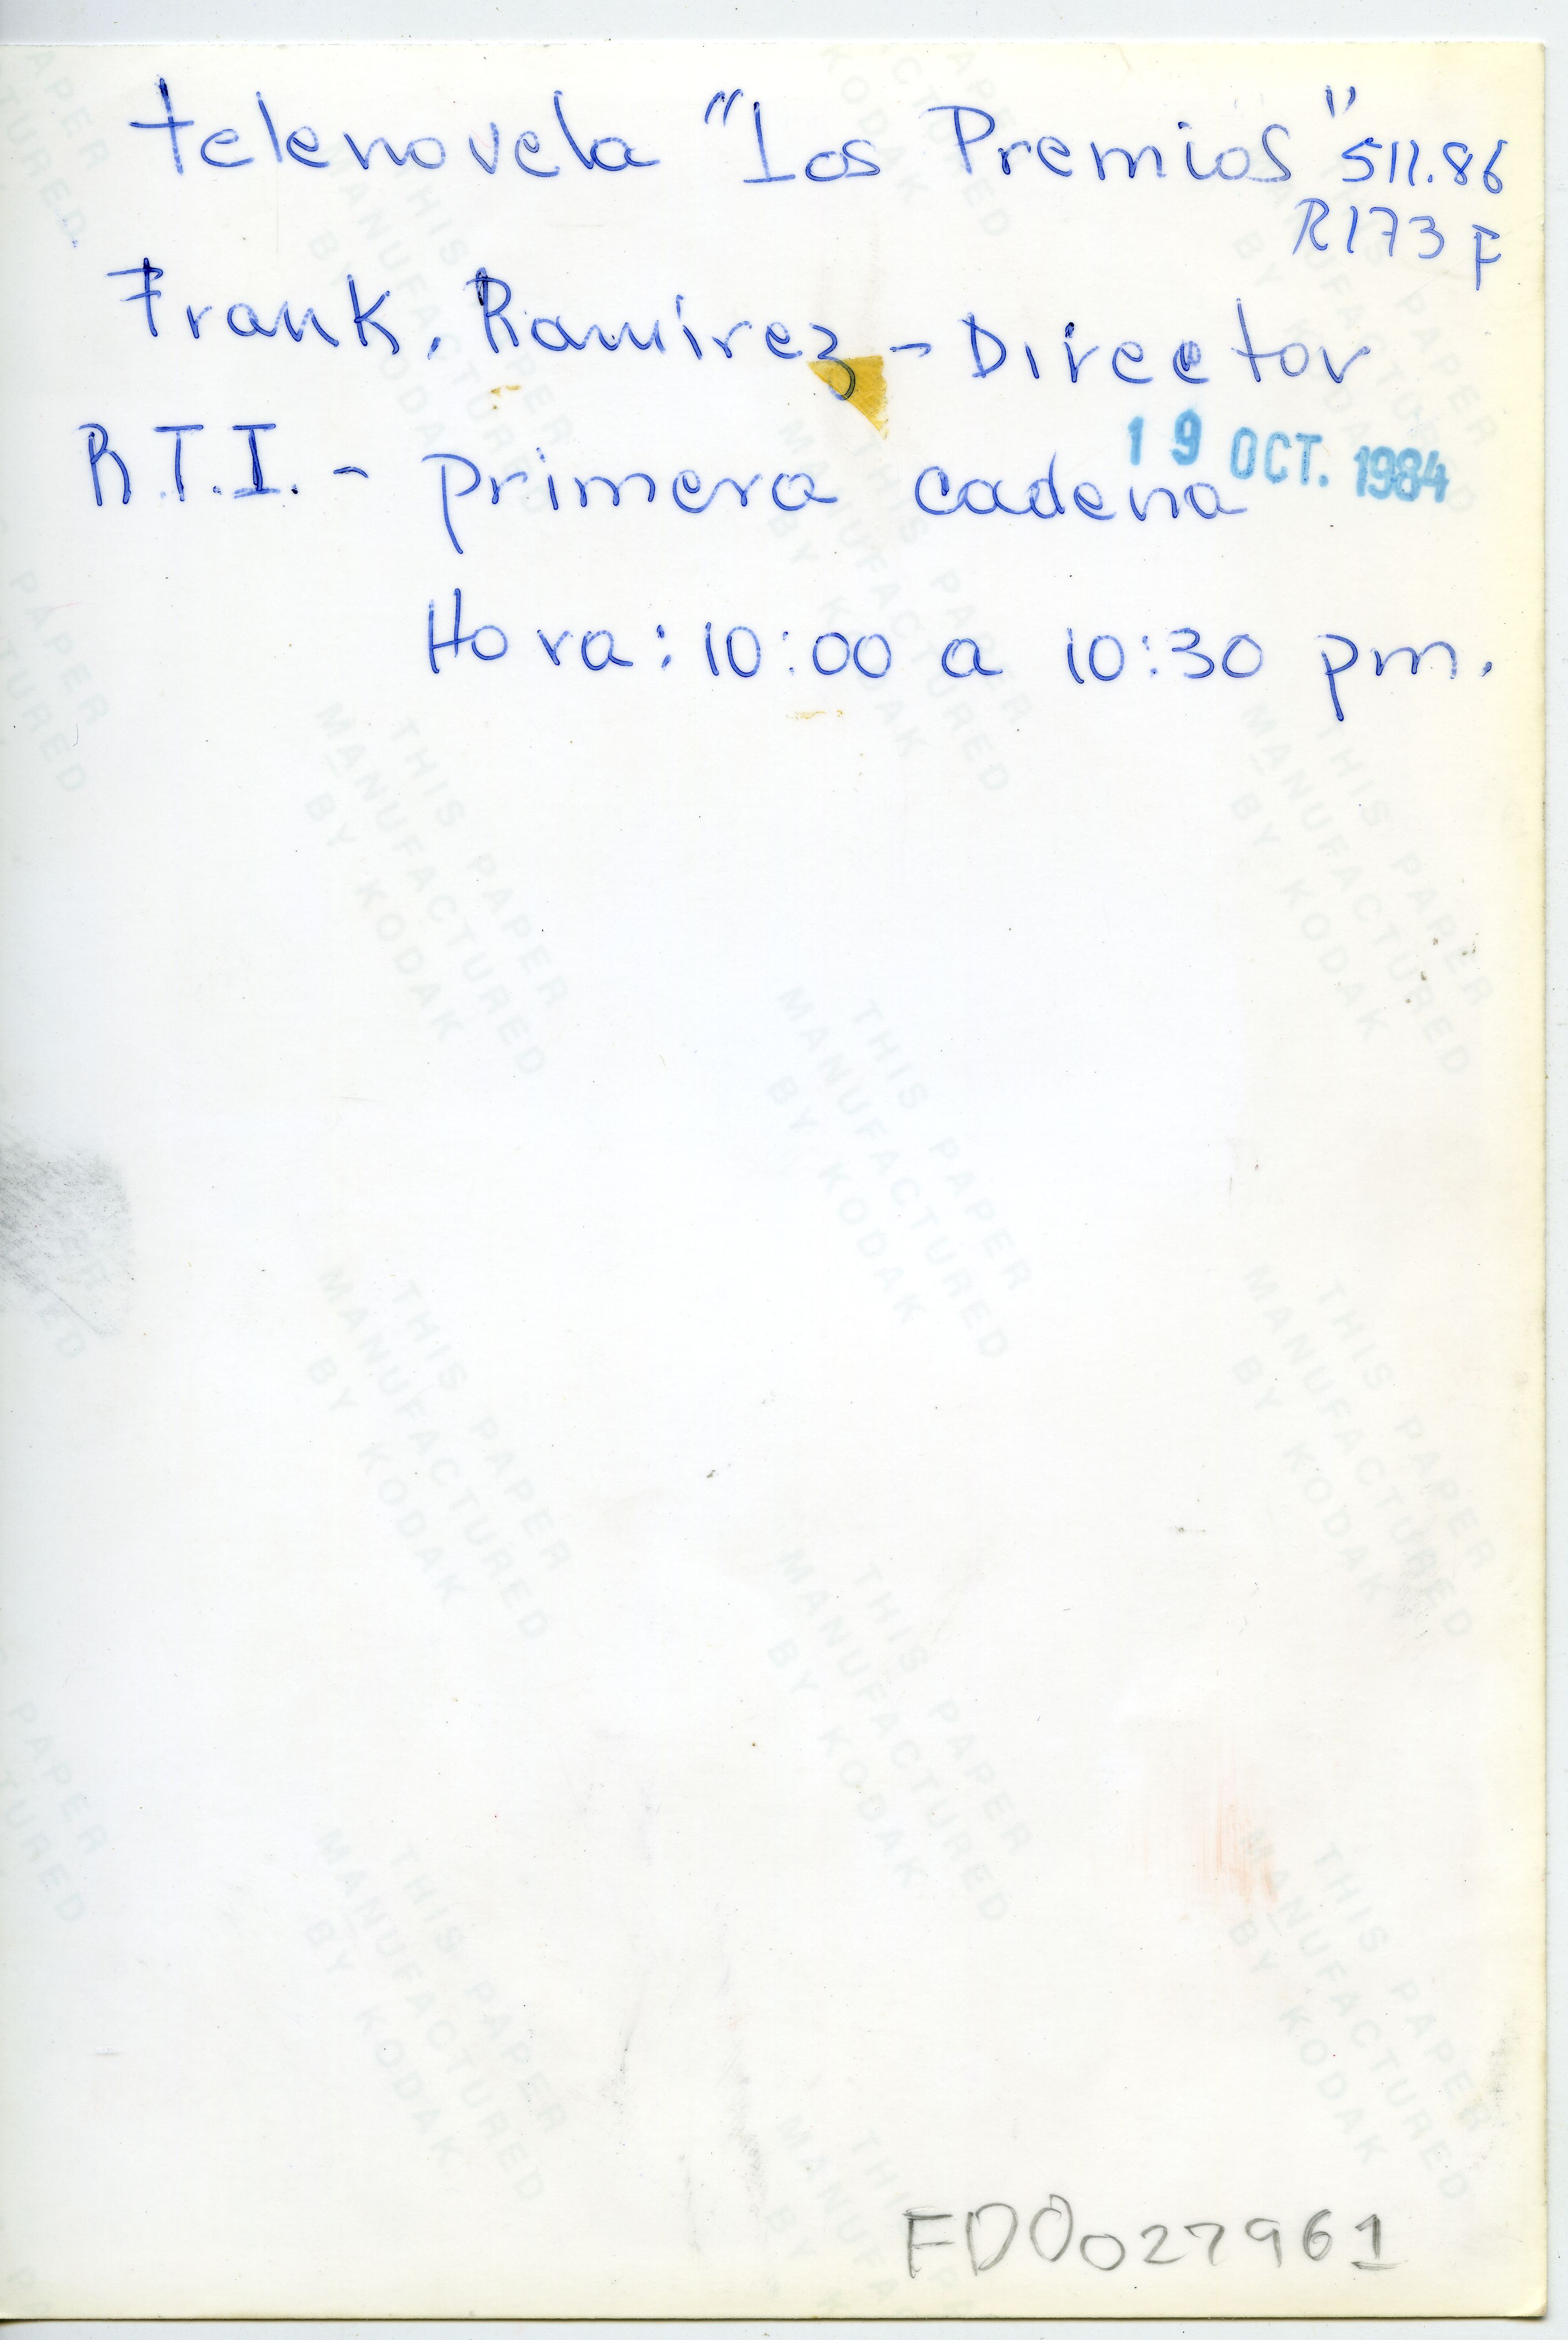 telenovela "Los Premios" 511.86
R173F
Frank. Ramírez - Director
R.T.I. - primera cadena
19 OCT. 1984
Hora: 10:00 a 10:30 pm.
THIS PAPER
MANUFACTURED
BY KODAK
FD0027961